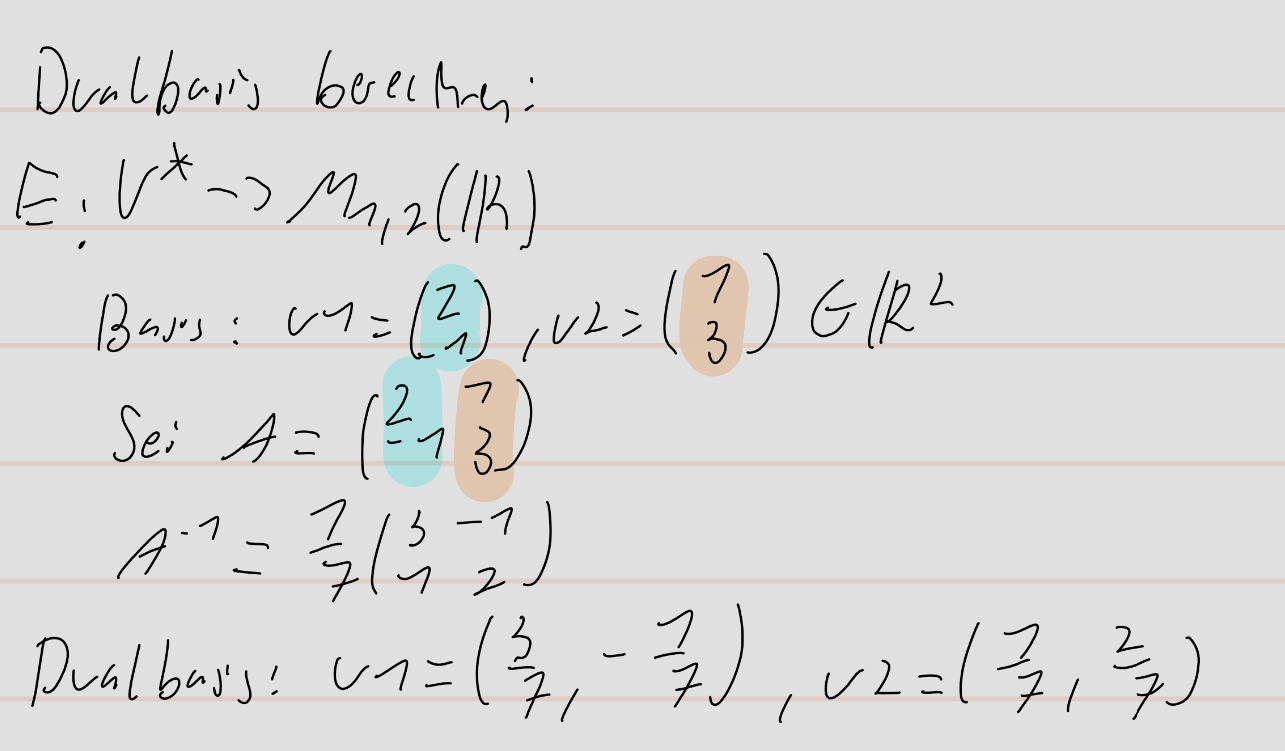 Dualbasis berechnen:
E: V* -> M1,2(IK)
Basis: v1 = (2 -1), v2 = (1 3) ∈ IR²
Sei A = (2 1 -1 3)
A⁻¹ = 1/7 (3 -1 1 2)
Dualbasis: v1 = (3/7, -1/7), v2 = (1/7, 2/7)